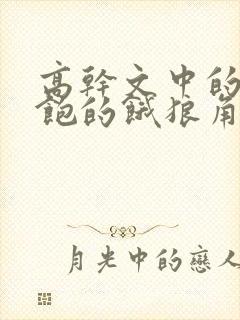 高幹文中的
飽的餓狼角
月光中的戀人